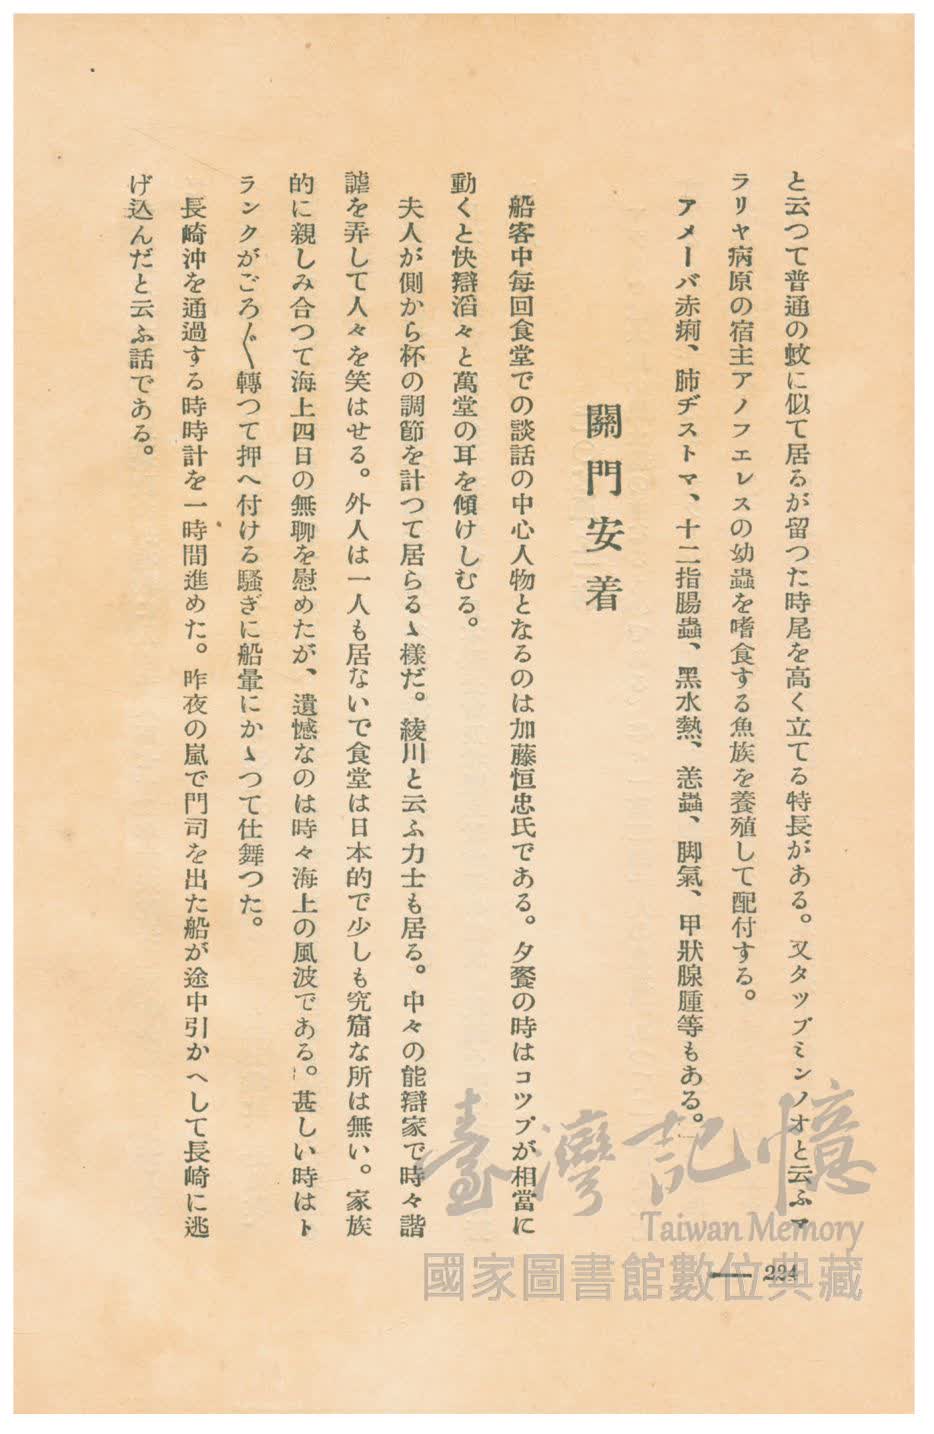 と云つて普通の蚊に似て居るが留つた時尾を高く立てる特長がある。又タツプミンノオと云ふマ
ラリヤ病原の宿主アノフエレスの幼蟲を嗜食する魚族を養殖して配付する。
アメーバ赤痢、肺ヂストマ、十二指腸蟲、黑水熱、恙蟲、脚氣、甲狀腺腫等もある。
關門安着
船客中每回食堂での談話の中心人物となるのは加藤恒忠氏である。夕餐の時はコツプが相當に
動くと快辯滔々と萬堂の耳を傾けしむる。
夫人が側から杯の調節を計つて居らるゝ樣だ。綾川と云ふ力士も居る。中々の能辯家で時々諧
謔を弄して人々を笑はせる。外人は一人も居ないで食堂は日本的で少しも究窟な所は無い。家族
的に親しみ合つて海上四日の無聊を慰めたが、遺憾なのは時々海上の風波である。甚しい時はト
ランクがごろ〴〵轉つて押へ付ける騷ぎに船暈にかゝつて仕舞つた。
長崎沖を通過する時時計を一時間進めた。昨夜の嵐で門司を出た船が途中引かへして長崎に逃
げ込んだと云ふ話である。
224
臺灣記憶
Taiwan Memory
國家圖書館數位典藏